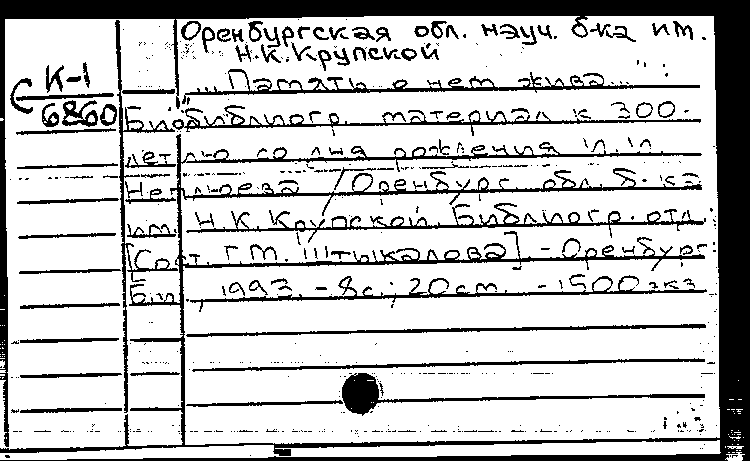 Оренбургская обл. науч. б-ка им.
Н.К. Крупской
К-1
6860
"... Память о нем жива..." :
Биобиблиогр. материал к 300-
летию со дня рождения И.И.
Неплюева / Оренбург. обл. б-ка
им. Н.К. Крупской. Библиогр. отд.;
[Сост. Г.М. Штыкалова]. - Оренбург:
Б.и., 1993. - 8с.; 20см. - 1500 экз